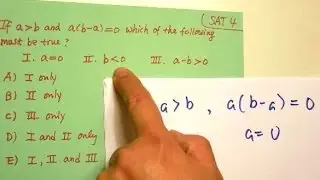 If a>b and a(b-a)=0 which of the following
must be true?
SAT 4
I. a=0 II. b<0 III. a-b>0
A) I only
B) II only
C) III only
D) I and II only
E) I, II and III
a>b, a(b-a)=0
a=0